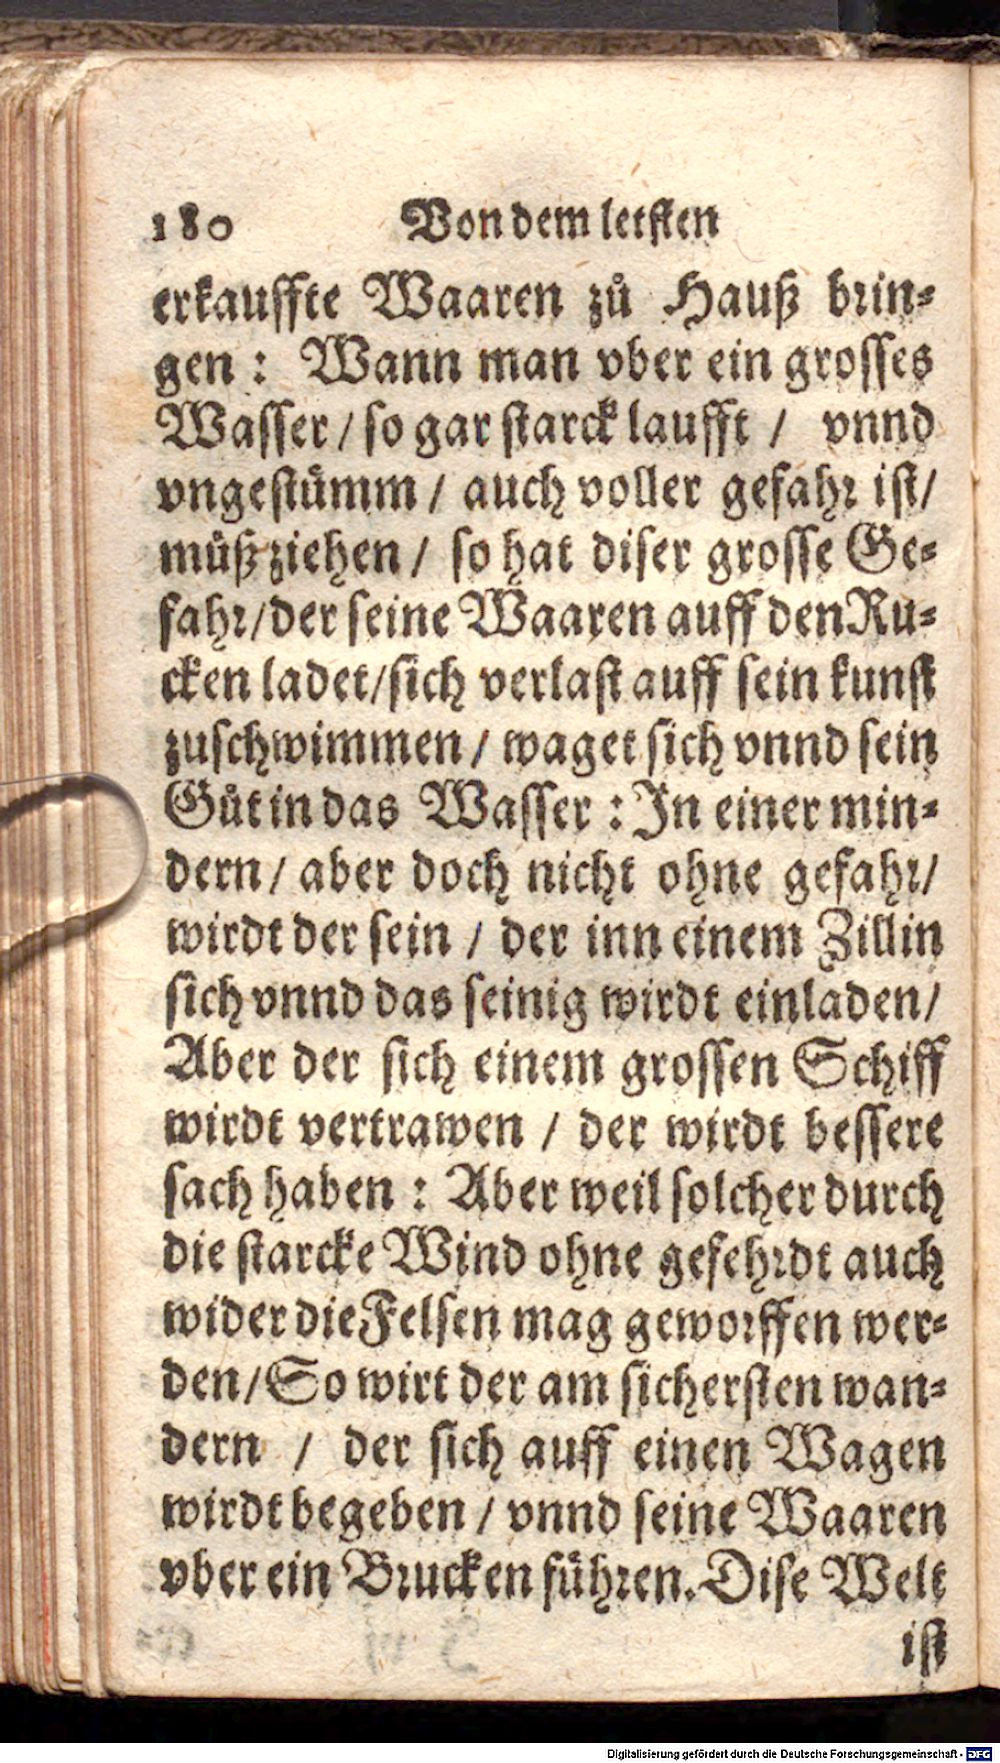 180 Von dem letsten
erkauffte Waaren zů Hauß brin-
gen : Wann man vber ein grosses
Wasser / so gar starck laufft / vnnd
vngestůmm / auch voller gefahr ist /
můß ziehen / so hat diser grosse Ge-
fahr / der seine Waaren auff den Ru-
cken ladet / sich verlast auff sein kunst
zuschwimmen / waget sich vnnd sein
Gůt in das Wasser : In einer min-
dern / aber doch nicht ohne gefahr /
wirdt der sein / der inn einem Zillin
sich vnnd das seinig wirdt einladen /
Aber der sich einem grossen Schiff
wirdt vertrawen / der wirdt bessere
sach haben : Aber weil solcher durch
die starcke Wind ohne gefehrdt auch
wider die Felsen mag geworffen wer-
den / So wirt der am sichersten wan-
dern / der sich auff einen Wagen
wirdt begeben / vnnd seine Waaren
vber ein Brucken führen. Dise Welt
ist
Digitalisierung gefördert durch die Deutsche Forschungsgemeinschaft - DFG